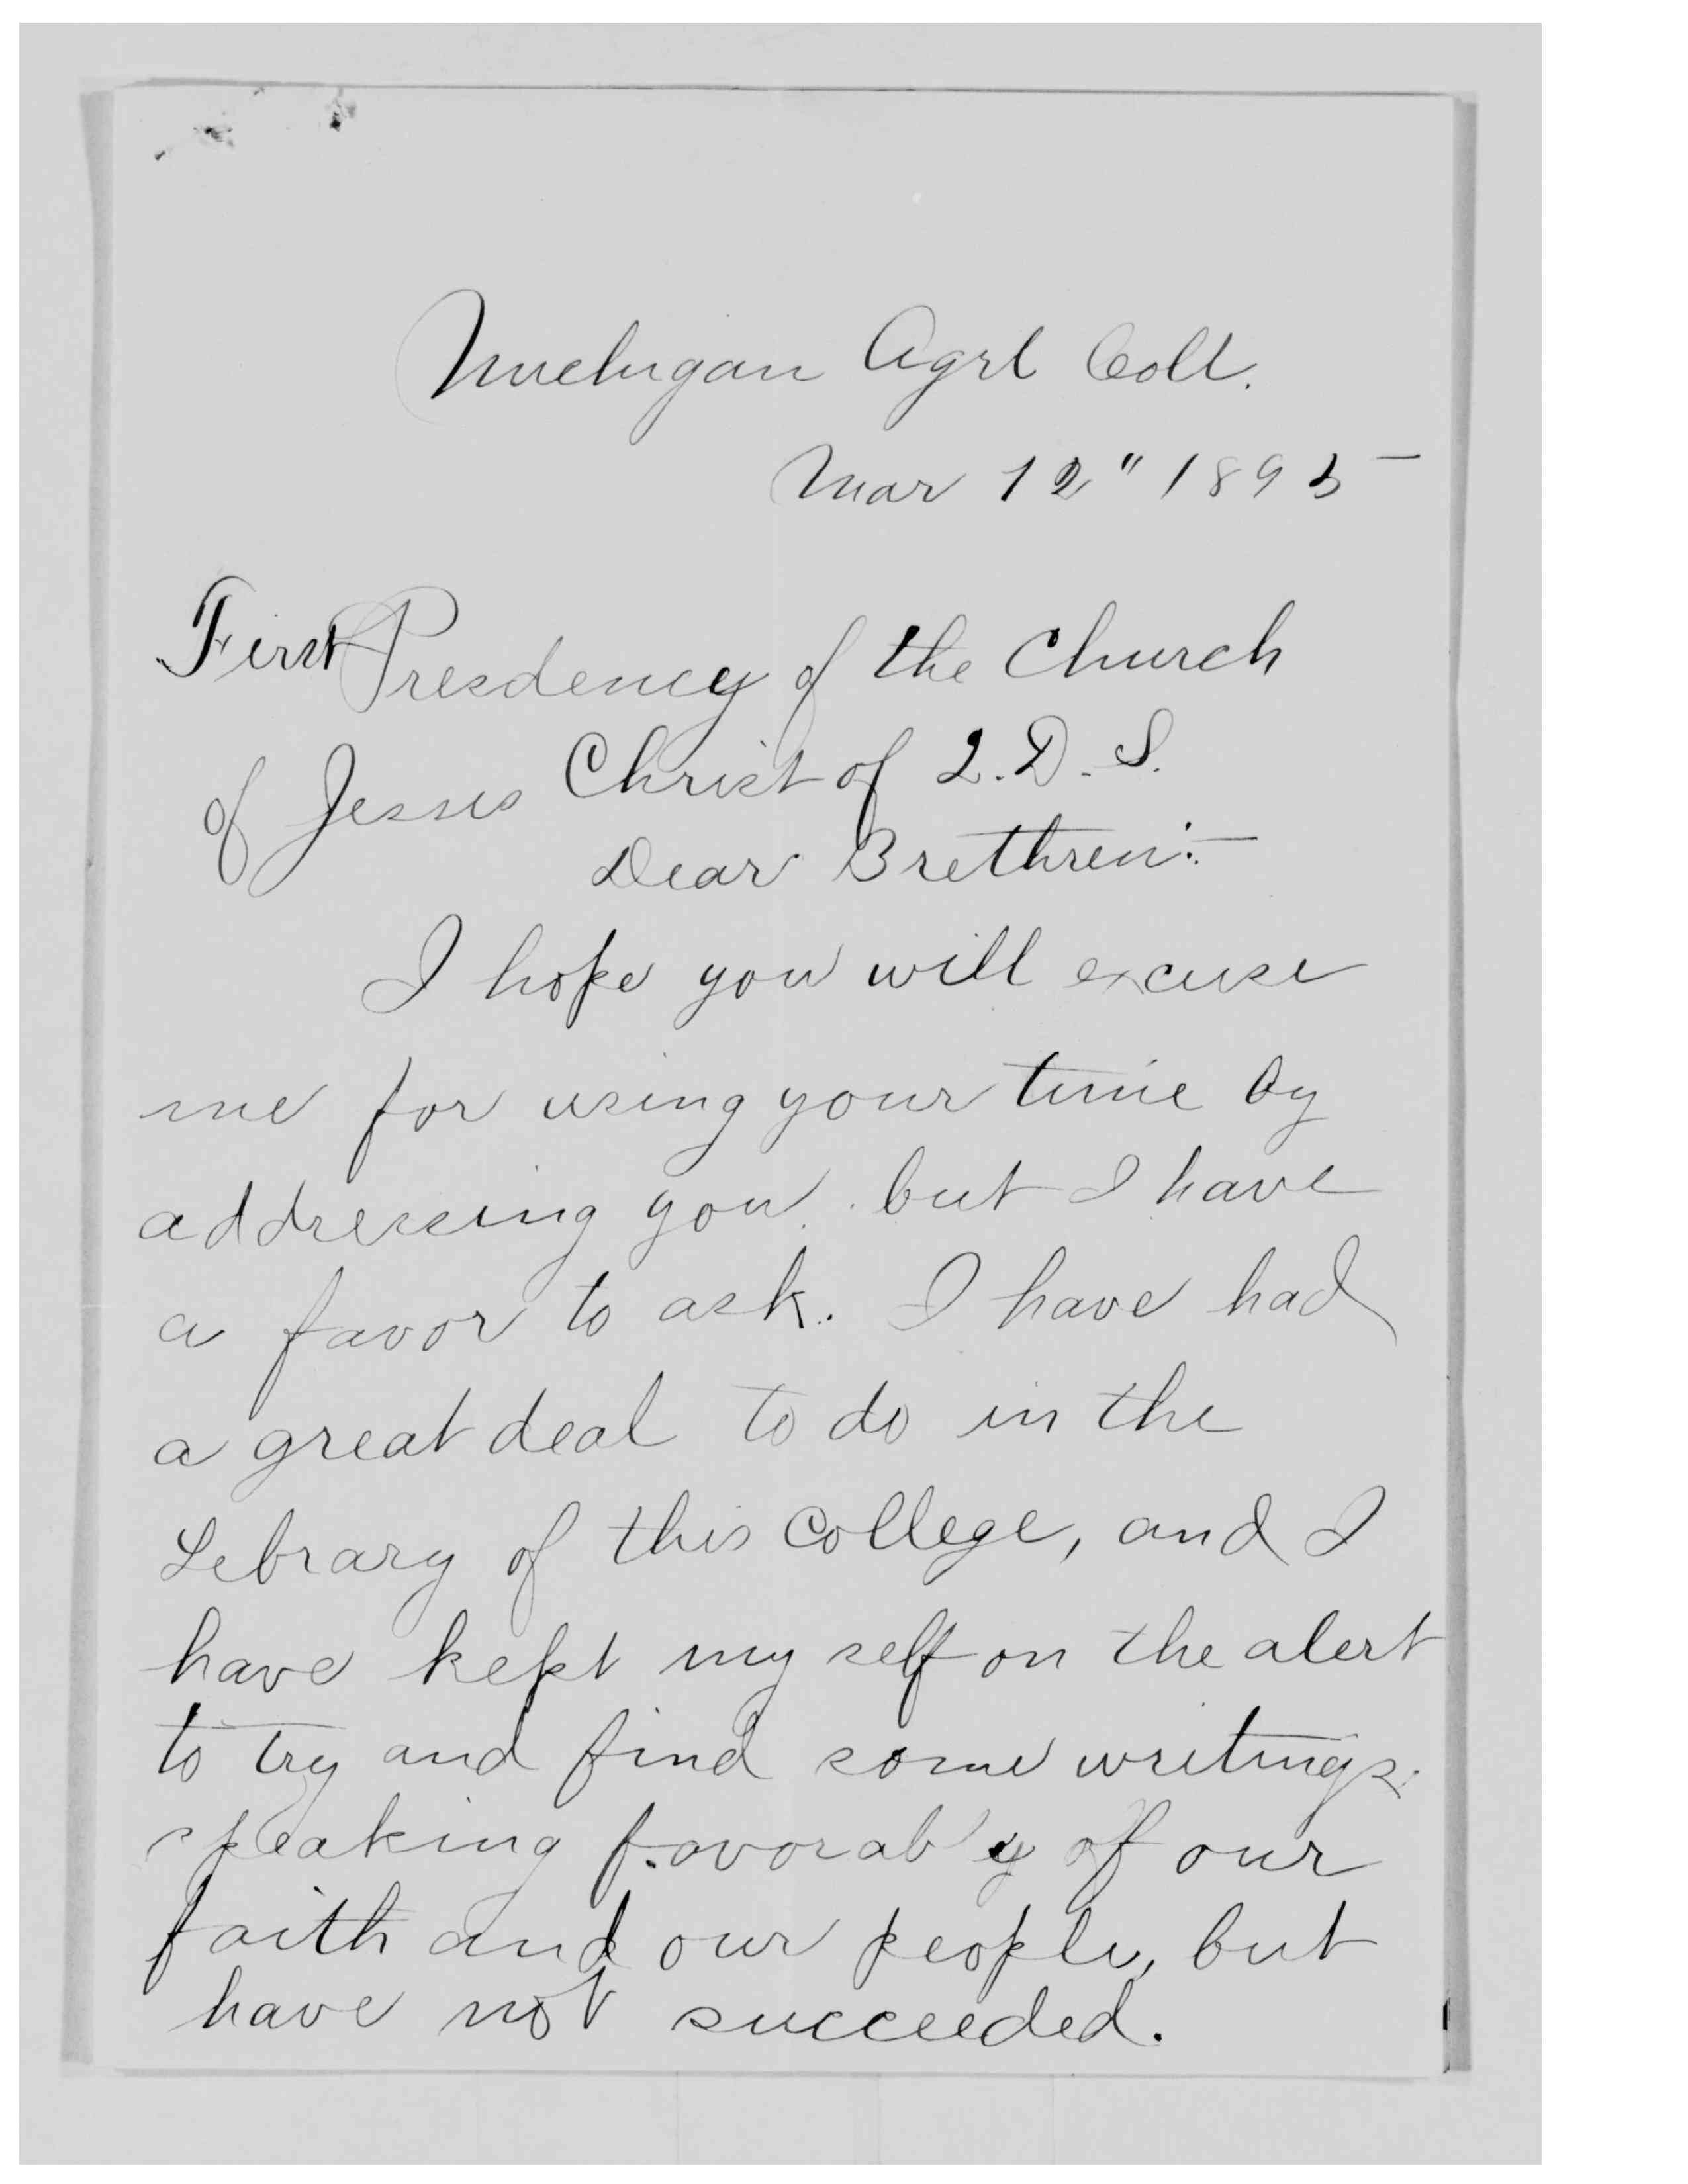 Michigan Agrl Coll.
Mar 12" 1895
First Presdency of the Church
of Jesus Christ of L.D.S.
Dear Brethren:-
I hope you will excuse
me for using your time by
addressing you. but I have
a favor to ask. I have had
a great deal to do in the
Library of this College, and I
have kept my self on the alert
to try and find some writings
speaking favorably of our
faith and our people, but
have not succeeded.